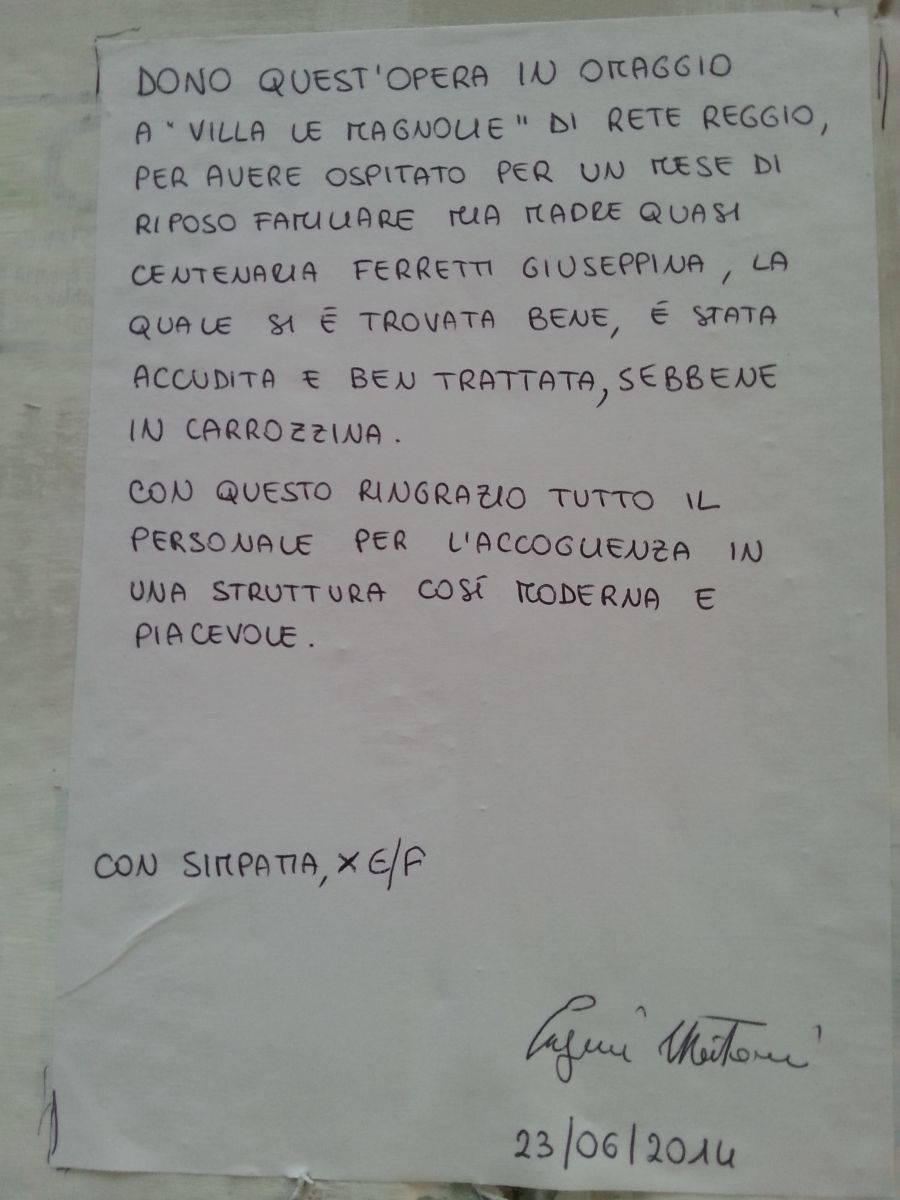 DONO QUEST'OPERA IN OMAGGIO
A "VILLA LE MAGNOLIE" DI RETE REGGIO,
PER AVERE OSPITATO PER UN MESE DI
RIPOSO FAMILIARE MIA MADRE QUASI
CENTENARIA FERRETTI GIUSEPPINA, LA
QUALE SI É TROVATA BENE, É STATA
ACCUDITA E BEN TRATTATA, SEBBENE
IN CARROZZINA.
CON QUESTO RINGRAZIO TUTTO IL
PERSONALE PER L'ACCOGLIENZA IN
UNA STRUTTURA COSÍ MODERNA E
PIACEVOLE.
CON SIMPATIA, X E/F
23/06/2014